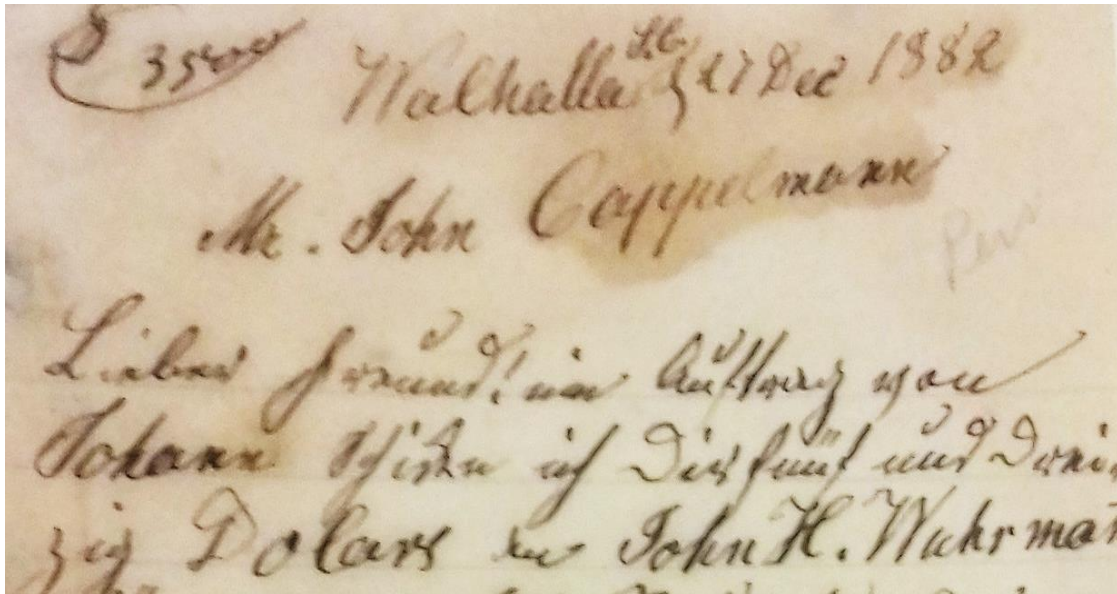 $ 35 00
Walhalla SC 17 Dec 1882
Mr. John Cappelmann
Lieber Freund! im Auftrag von
Johann schicke ich Dir fünf und drei
zig Dolars an John H. Wuhrman